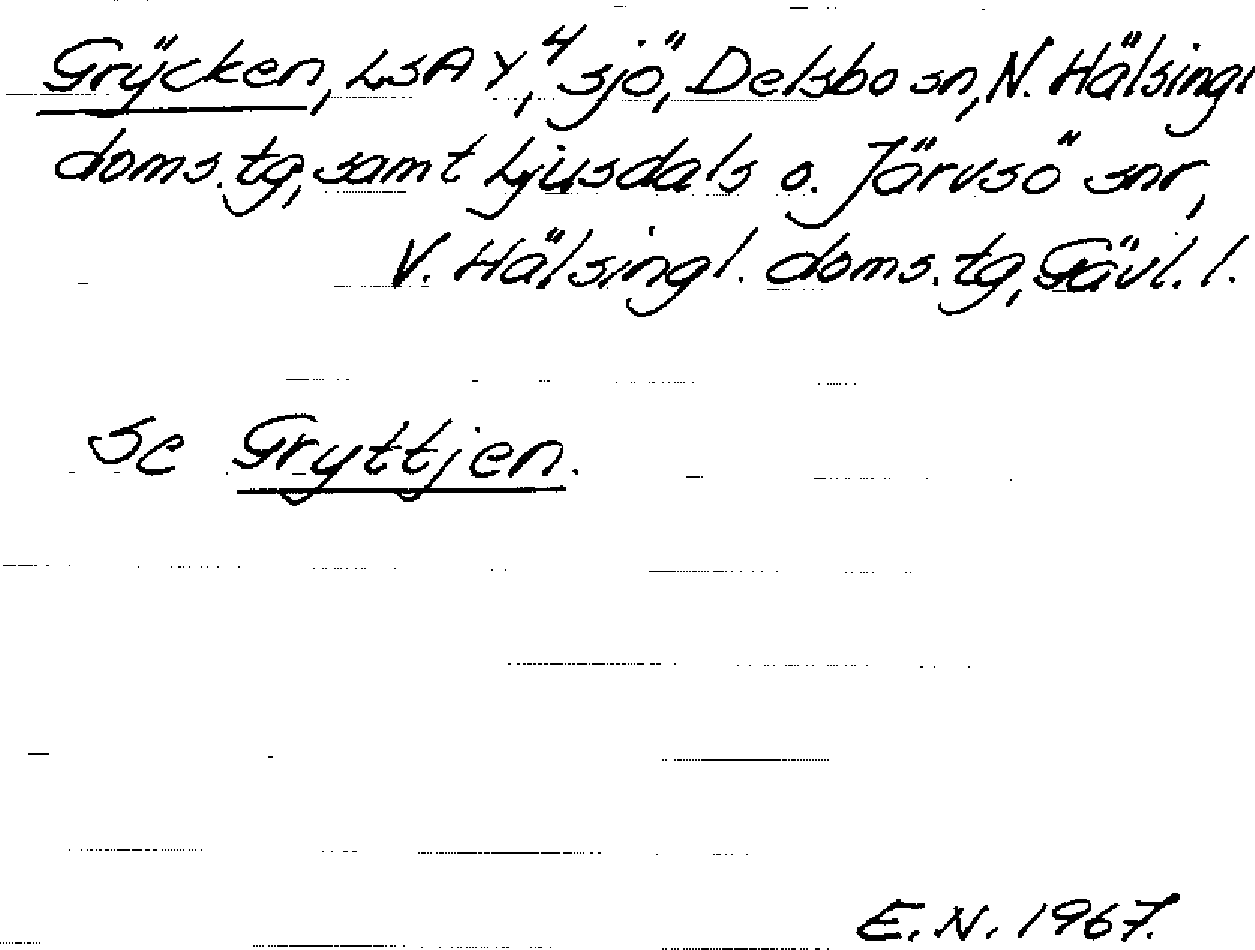 Grÿcken, LSA Y⁴, sjö, Delsbo sn, N. Hälsingl
doms.tg, samt Ljusdals o. Järvsö snr,
V. Hälsingl. doms.tg, Gävl. l.
Se Gryttjen.
E.N. 1967.